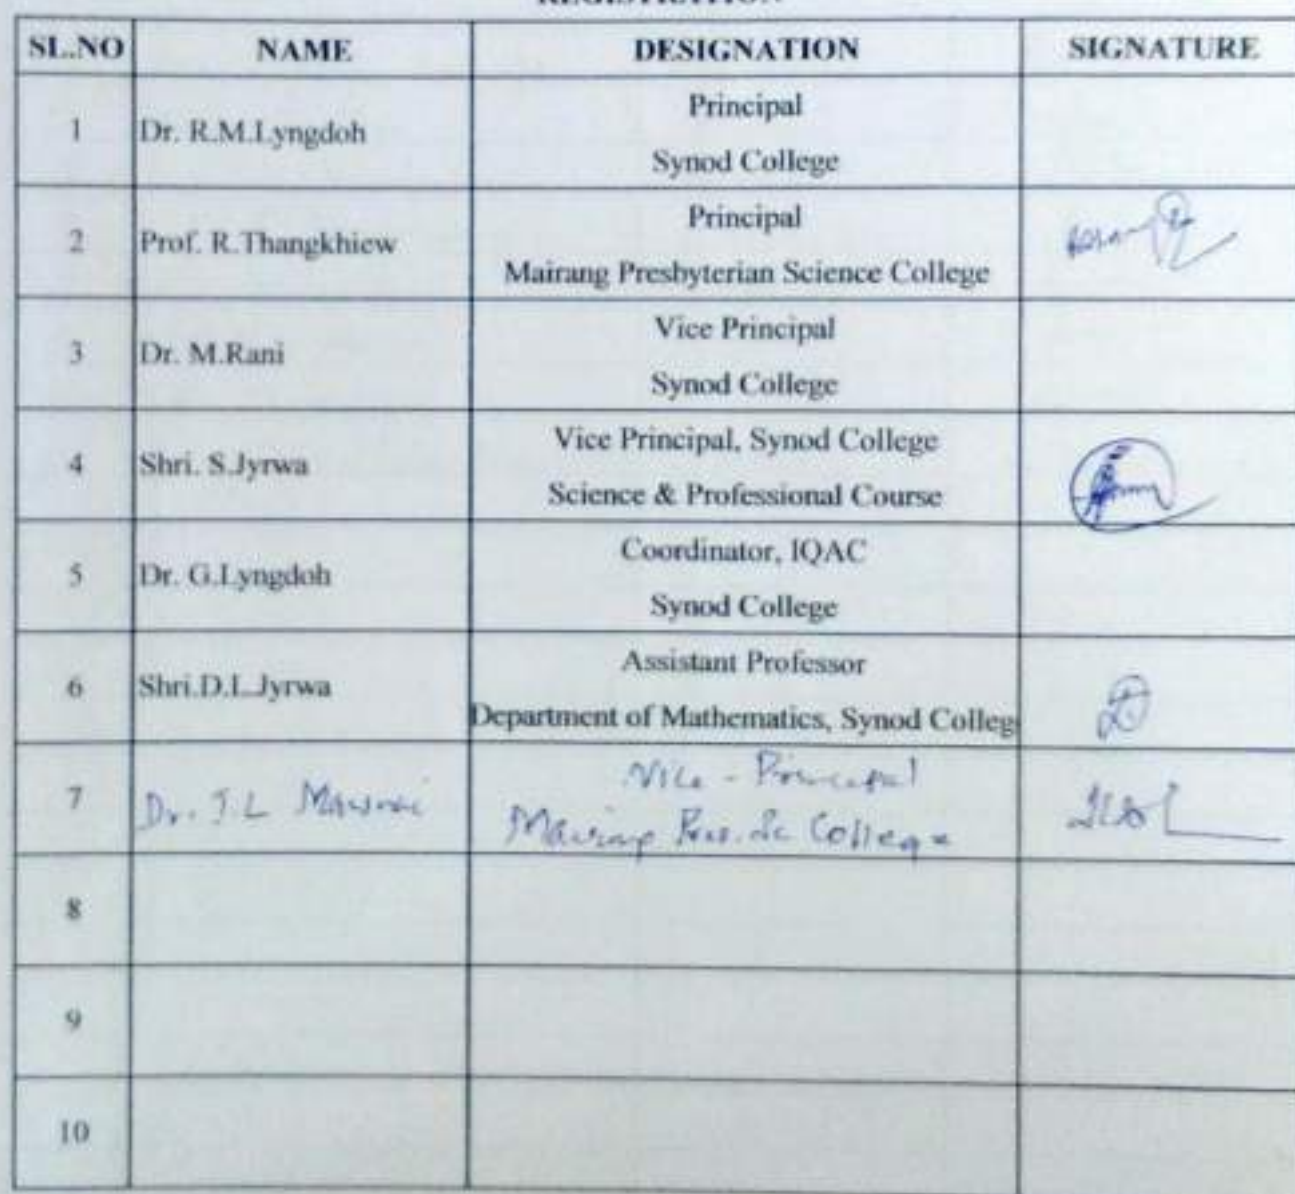 REGISTRATION
SL.NO NAME DESIGNATION SIGNATURE
1 Dr. R.M.Lyngdoh Principal
Synod College
2 Prof. R.Thangkhiew Principal
Mairang Presbyterian Science College
3 Dr. M.Rani Vice Principal
Synod College
4 Shri. S.Jyrwa Vice Principal, Synod College
Science & Professional Course
5 Dr. G.Lyngdoh Coordinator, IQAC
Synod College
6 Shri.D.L.Jyrwa Assistant Professor
Department of Mathematics, Synod Colleg
7 Dr. J.L Vice - Principal
Mairang Sc College
8
9
10